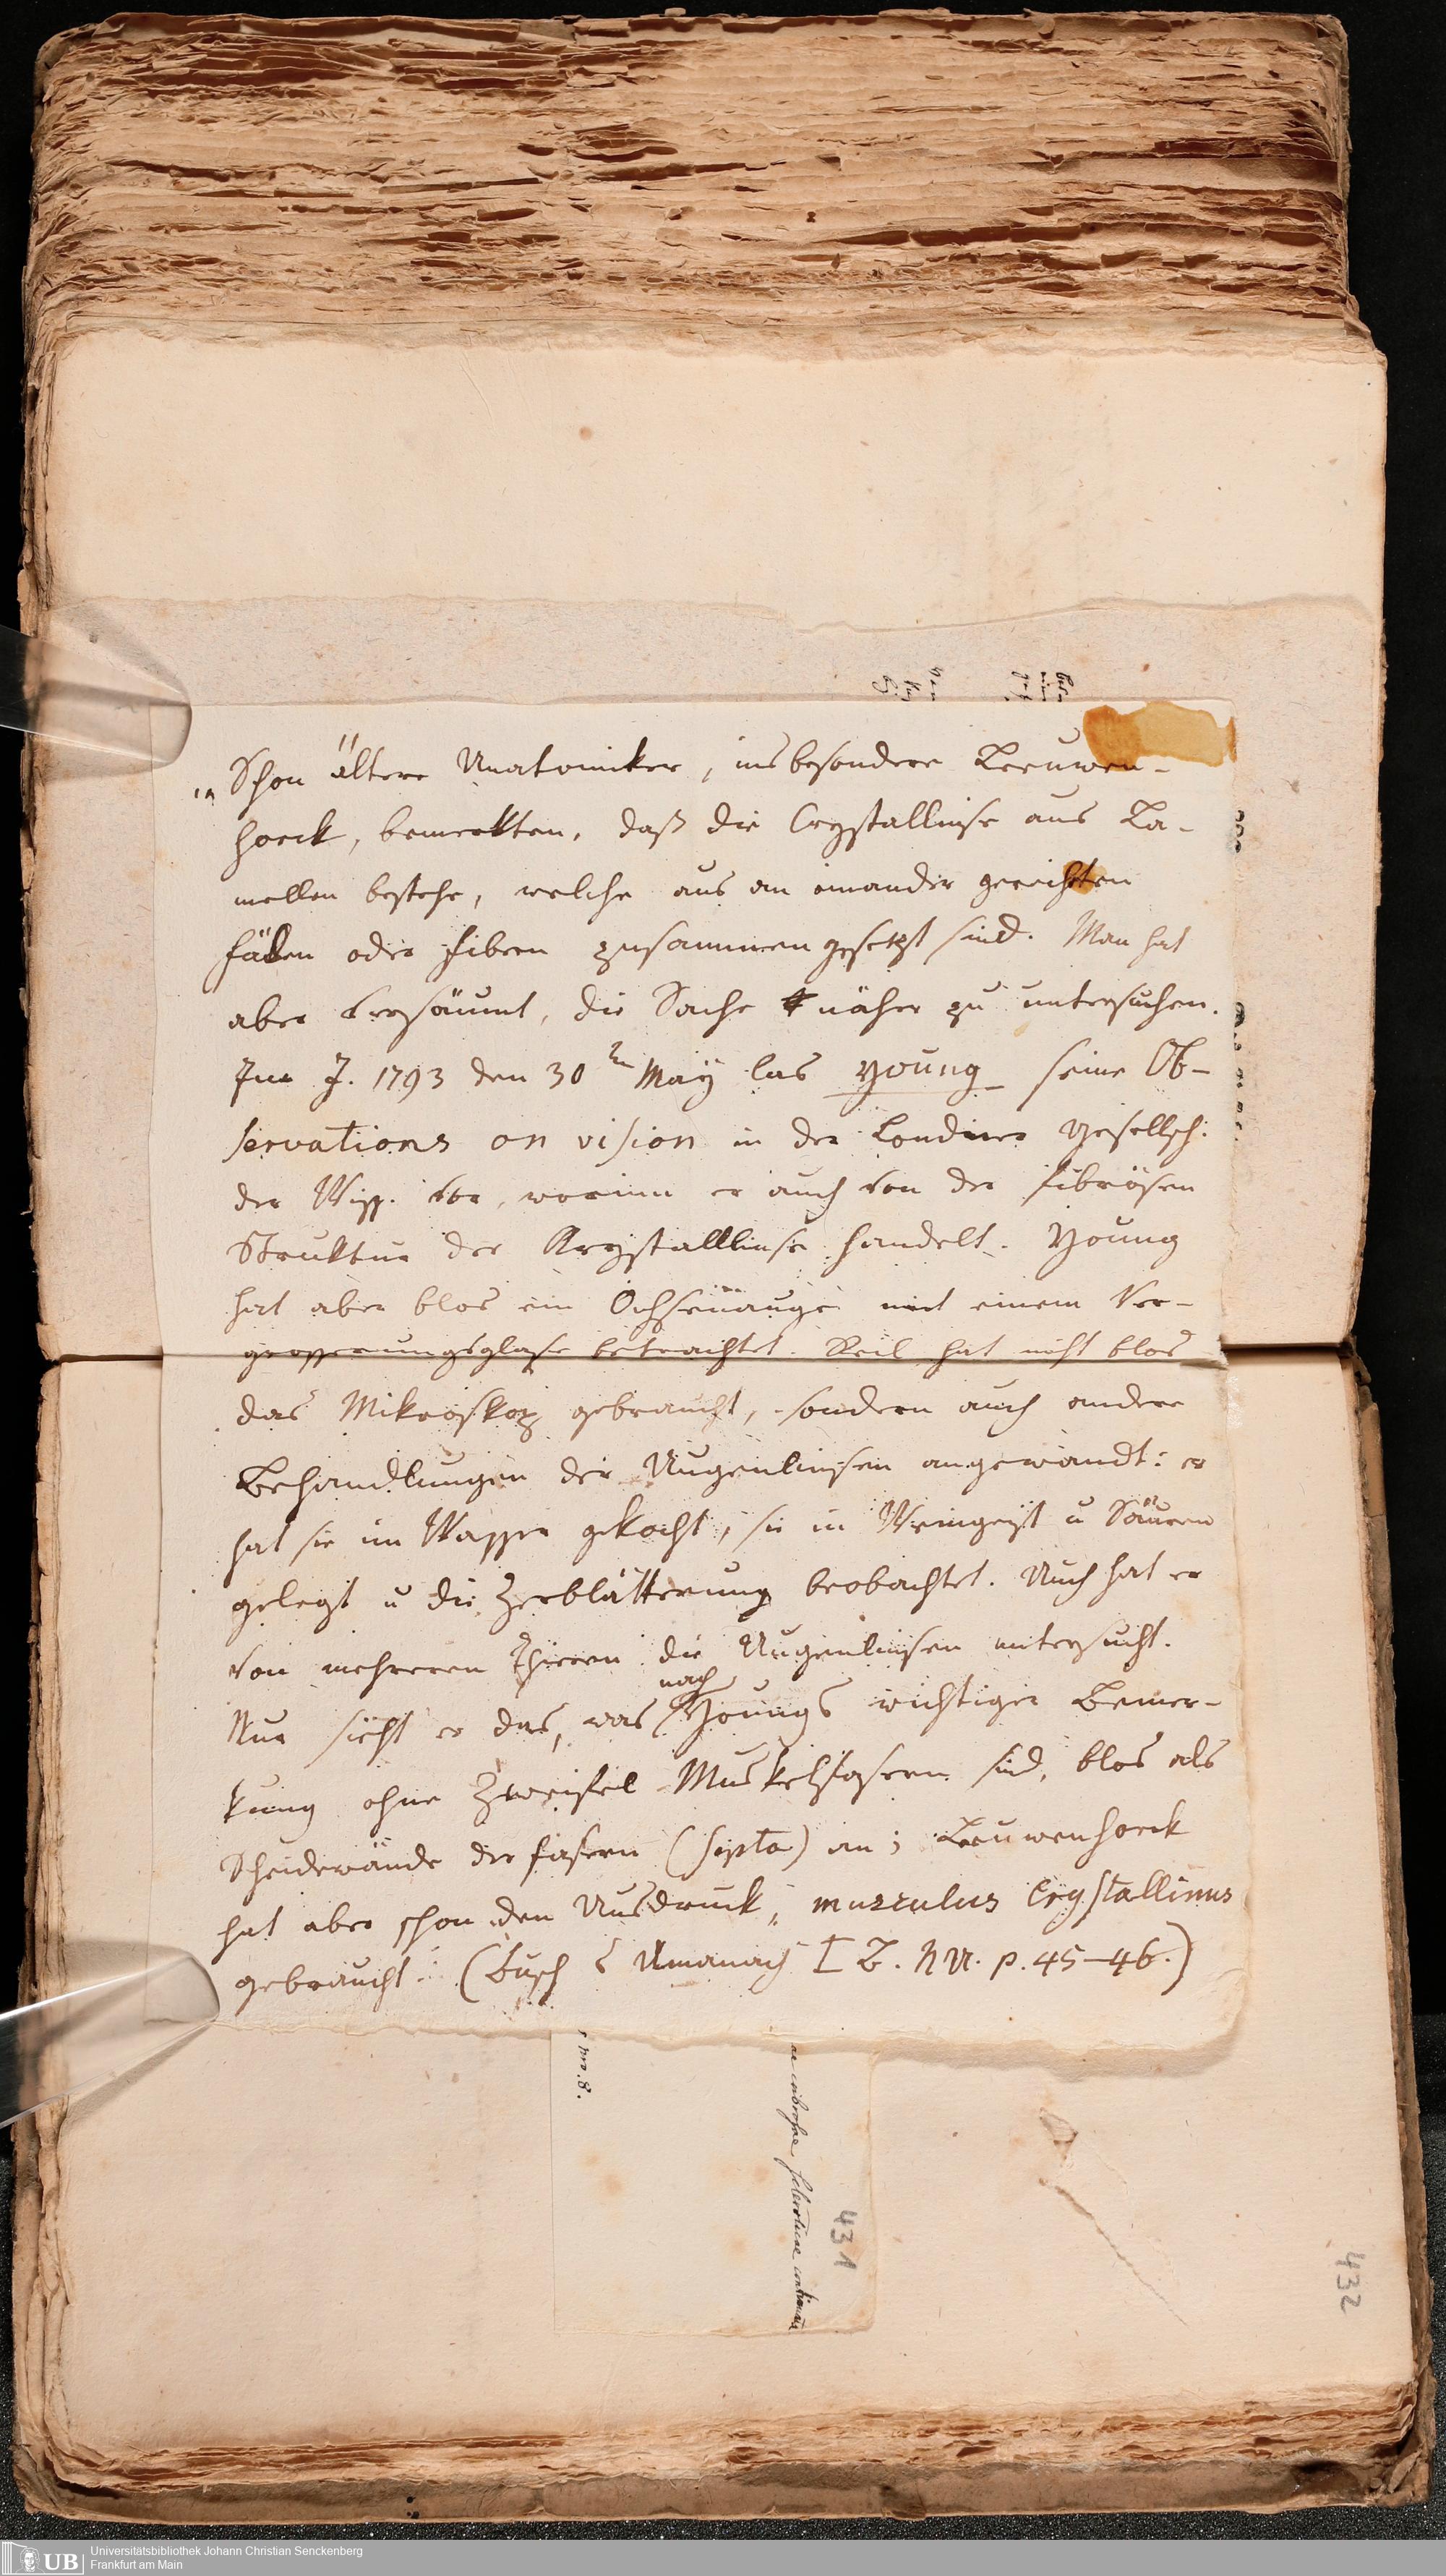 „ Schon ältere Anatomiker, insbesondere Leeuwen-
hoeck, bemerkten, daß die Crystallinse aus La-
mellen bestehe, welche aus an einander gereihten
Fäden oder Fibern zusammengesetzt sind. Man hat
aber versäumt, die Sache näher zu untersuchen.
Im J. 1793 den 30ten May las Young seine Ob-
servations on vision in der Londner Gesellsch:
der Wiss. vor, worinn er auch von der fibrösen
Struktur der Krystalllinse handelt. Young
hat aber blos ein Ochsenauge mit einem Ver-
grosserungsglase betrachtet. Reil hat nicht blos
das Mikroskop gebraucht, sondern auch andere
Behandlungen der Augenlinsen angewandt: er
hat sie im Wasser gekocht, sie in Weingeist u Säuren
gelegt u die Zerblätterung beobachtet. Auch hat er
von mehreren Thieren die Augenlinsen untersucht.
nach
Nur sieht er das, was Youngs wichtiger Bemer-
kung ohne Zweifel Muskelfasern sind, blos als
Scheidewände der Fasern (septa) an; Leeuwenhoeck
hat aber schon den Ausdruck „ musculus Crystallinus
gebraucht. (Busch s Almanach I B. NA. p. 45-46.)
nro. 8.
scleroticae
431
432
UB
Universitätsbibliothek Johann Christian Senckenberg
Frankfurt am Main